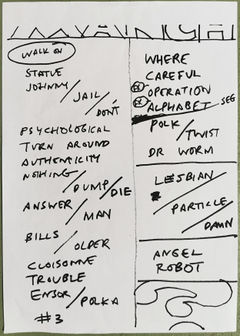 WALK ON
STATUE
JOHNNY/
JAIL/
DON'T
PSYCHOLOGICAL
TURN AROUND
AUTHENTICITY
NOTHING/
/DIE
ANSWER/
MAN
BILLS/
OLDER
CLOISONNE
TROUBLE
ENSOR/
POLKA
#3
WHERE
CAREFUL
OPERATION
ALPHABET SEG
POLK/
TWIST
DR WORM
LESBIAN/
PARTICLE/
DAMN
ANGEL
ROBOT